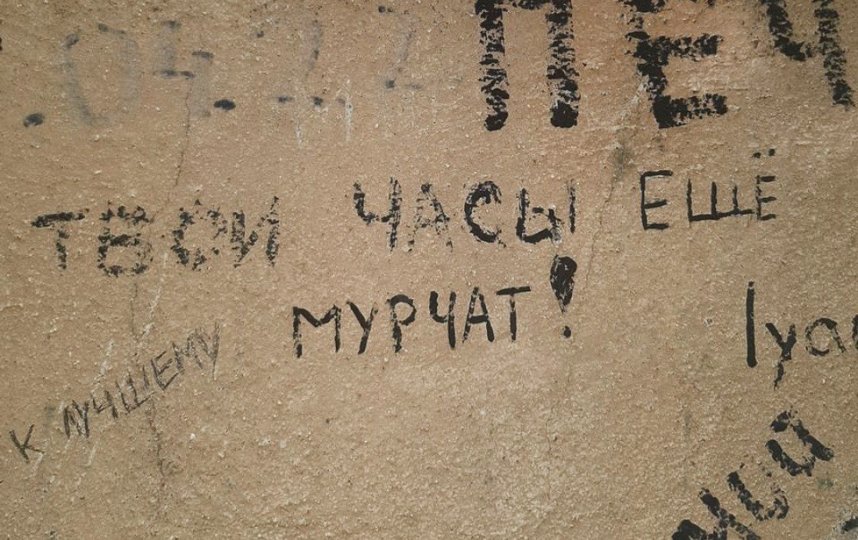 .04.22
ПЕЧ
ТВОИ ЧАСЫ ЕЩЁ
МУРЧАТ!
К ЛУЧШЕМУ